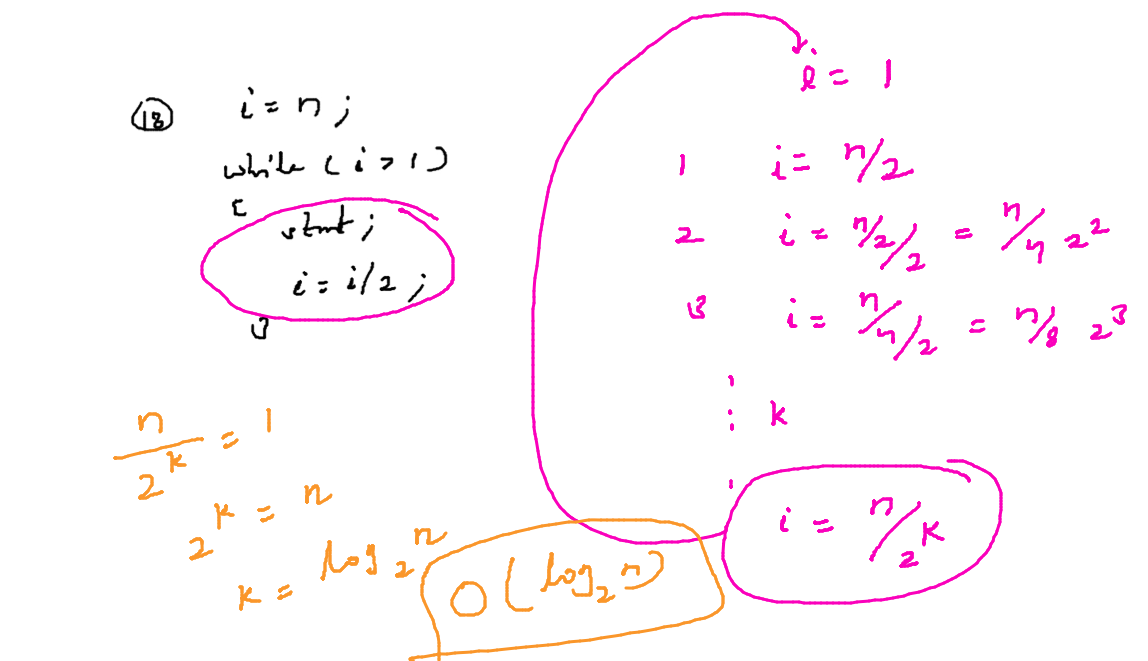 18 i = n ;
while ( i > 1 )
{
stmt ;
i = i/2 ;
}
i = 1
1 i = n/2
2 i = n/2/2 = n/4 2²
3 i = n/4/2 = n/8 2³
⋮ k
i = n/2^k
n/2^k = 1
2^k = n
k = log₂ n
O ( log₂ n )